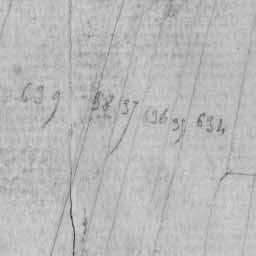 639 38 37 636 35 634